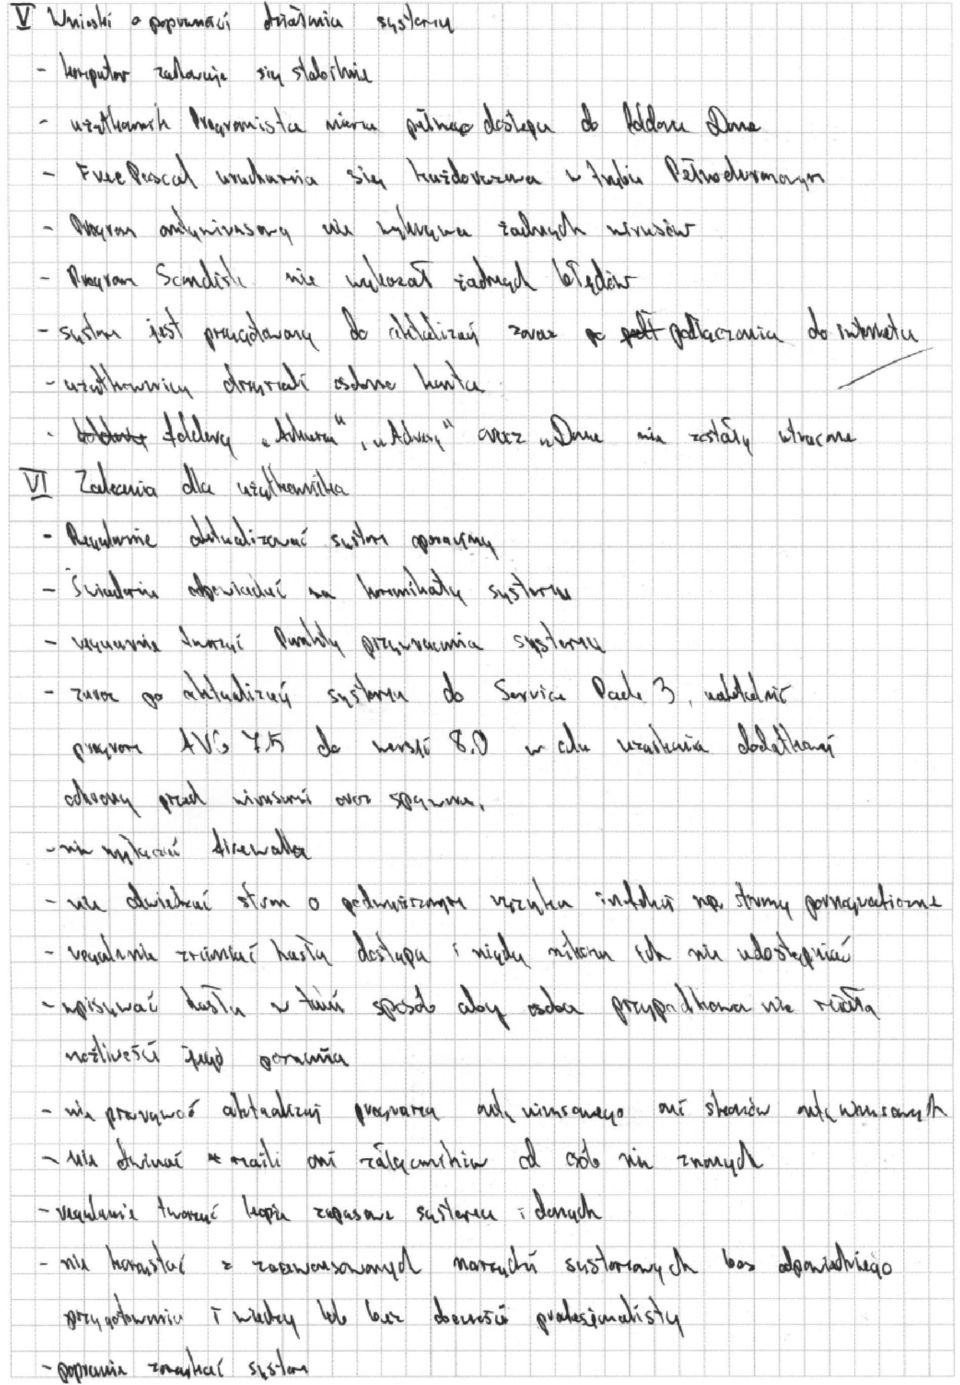 V Wnioski o poprawności działania systemu
- komputer zachowuje się stabilnie
- użytkownik Programista niema pełnego dostępu do folderu Dane
- Free Pascal uruchamia się każdorazowo w trybie Pełnoekranowym
- Program antywirusowy nie wykrywa żadnych wirusów
- Program Scandisk nie wykazał żadnych błędów
- system jest przygotowany do aktualizacji zaraz po podłączeniu do internetu
- użytkownicy otrzymali osobne konta
- foldery „Arkusze", „Adresy" oraz „Dane nie zostały utracone
VI Zalecenia dla użytkownika
- Regularnie aktualizować system operacyjny
- Świadomie odpowiadać na komunikaty systemu
- regularnie tworzyć Punkty przywracania systemu
- zaraz po aktualizacji systemu do Service Pack 3, uaktualnić
program AVG 7.5 do wersji 8.0 w celu uzyskania dodatkowej
ochrony przed wirusami oraz spyware.
- nie wyłączać firewalla
- nie odwiedzać stron o podwyższonym ryzyku infekcji np. strony pornograficzne
- regularnie zmieniać hasła dostępu i nigdy nikomu ich nie udostępniać
- wpisywać hasła w taki sposób aby osoba przypadkowa nie miała
możliwości jego poznania
- nie przerywać aktualizacji programu antywirusowego ani skanów antywirusowych
- nie otwierać maili ani załączników od osób nie znanych
- regularnie tworzyć kopie zapasowe systemu i danych
- nie korzystać z zaawansowanych narzędzi systemowych bez odpowiedniego
przygotowania i wiedzy lub bez obecności profesjonalisty
- poprawnie zamykać system